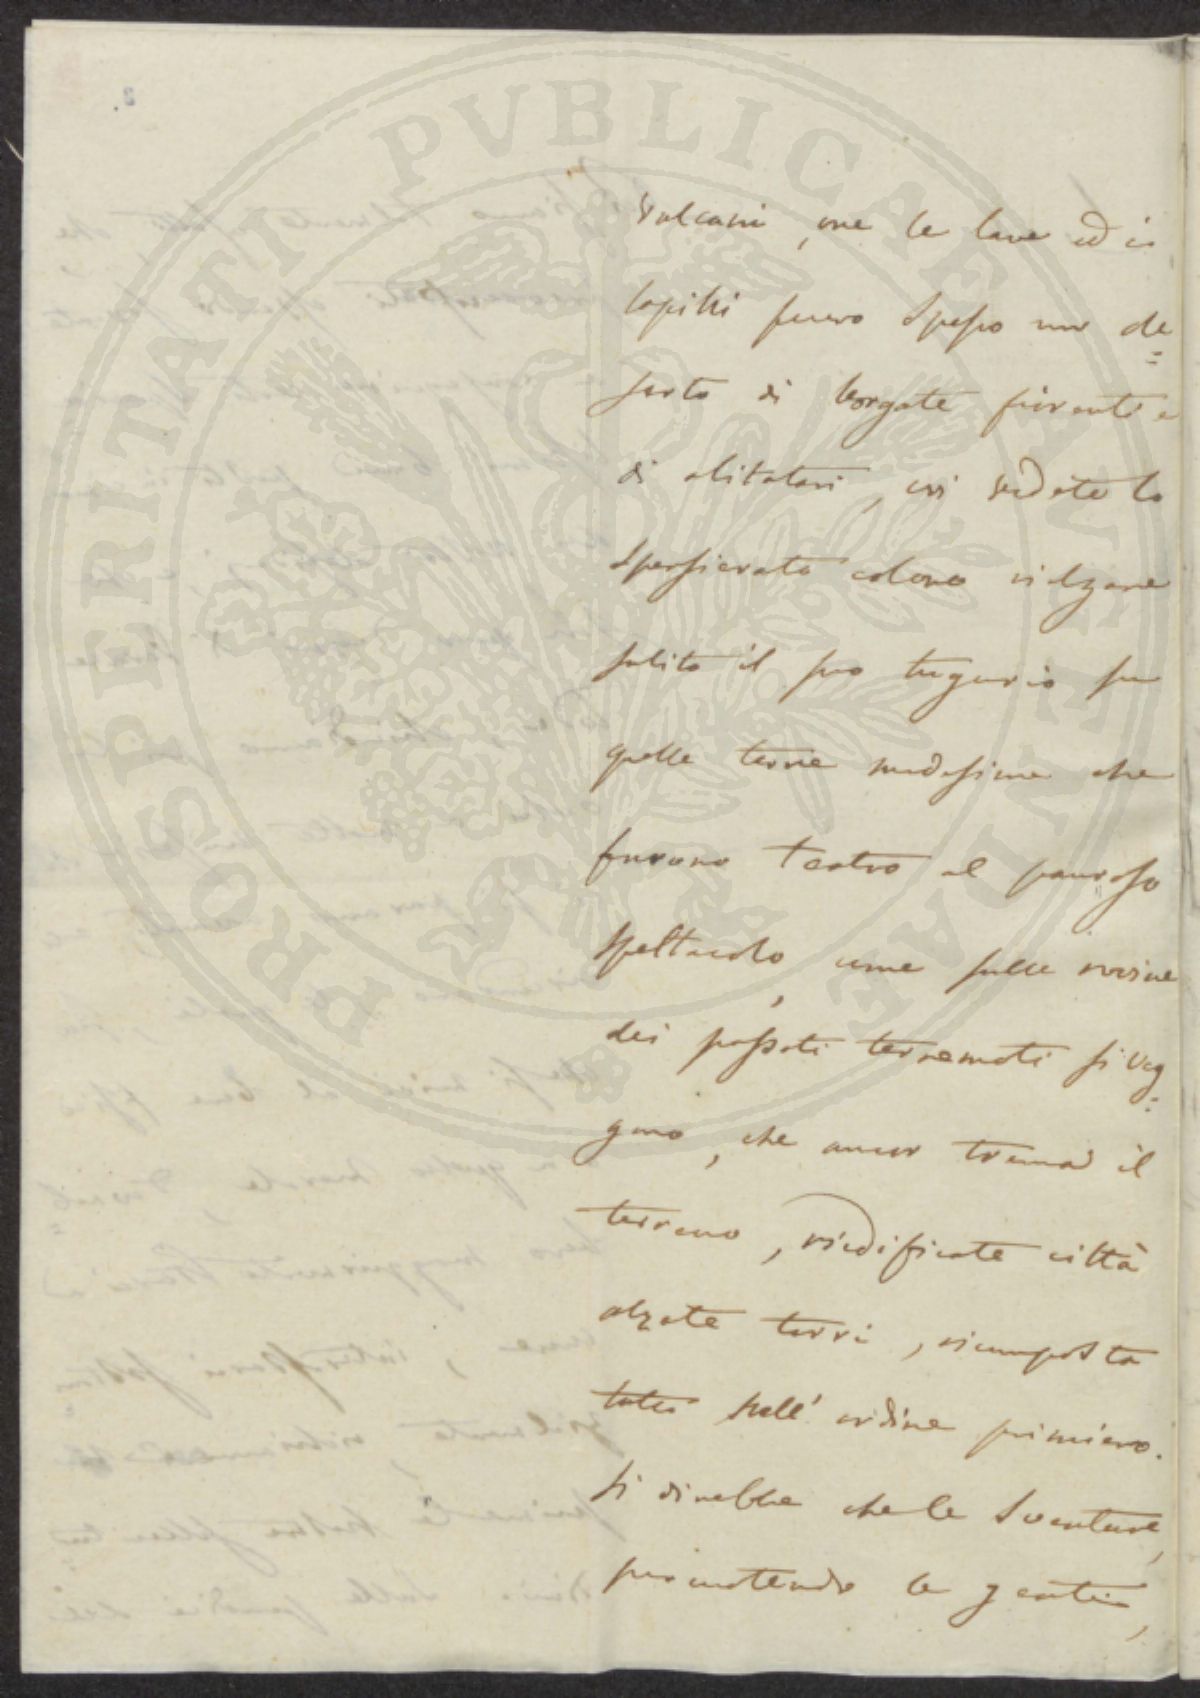 PROSPERITATI PVBLICAE AVGENDAE
Vulcani, ove le lave ed i
lapilli fecero spesso un de=
serto di borgate fiorenti e
di abitatori, ivi vedete lo
spensierato colono rialzare
subito il suo tugurio su
quelle terre medesime che
furono teatro al pauroso
spettacolo, come sulle rovine
dei passati terremoti si veg=
gono, che ancor trema il
terreno, riedificate città
alzate torri, ricomposto
tutto nell' ordine primiero.
Si direbbe che le sventure,
percuotendo le genti,